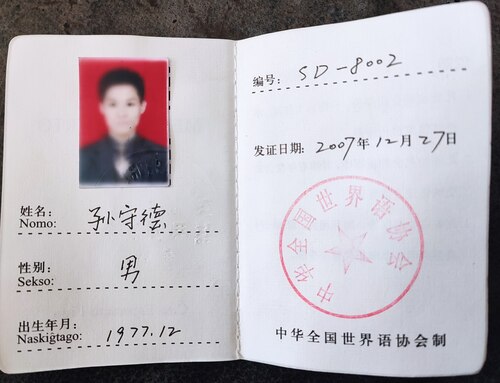 姓名: 孙守德
Nomo:
性别: 男
Sekso:
出生年月: 1977.12
Naskiĝtago:
编号: SD-8002
发证日期: 2007年12月27日
中华全国世界语协会
中华全国世界语协会制